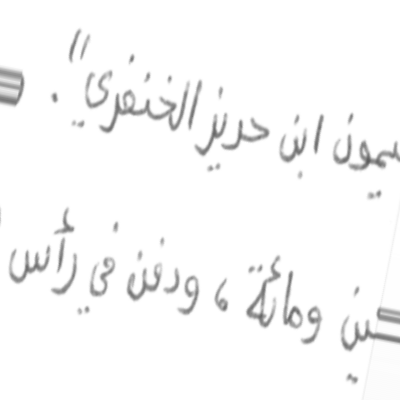 يمون ابن حريز الخنفري".
ين ومائة ، ودفن في رأس